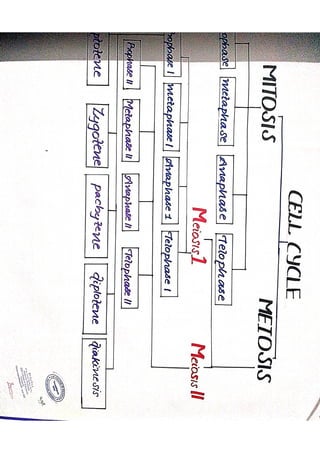 CELL CYCLE
MITOSIS MEIOSIS
ophase metaphase Anaphase Telophase
Meiosis 1 Meiosis II
ophase I metaphase I Anaphase 1 Telophase I
Prophase II Metaphase II Anaphase II Telophase II
ptotene Zygotene pachytene diplotene diakinesis